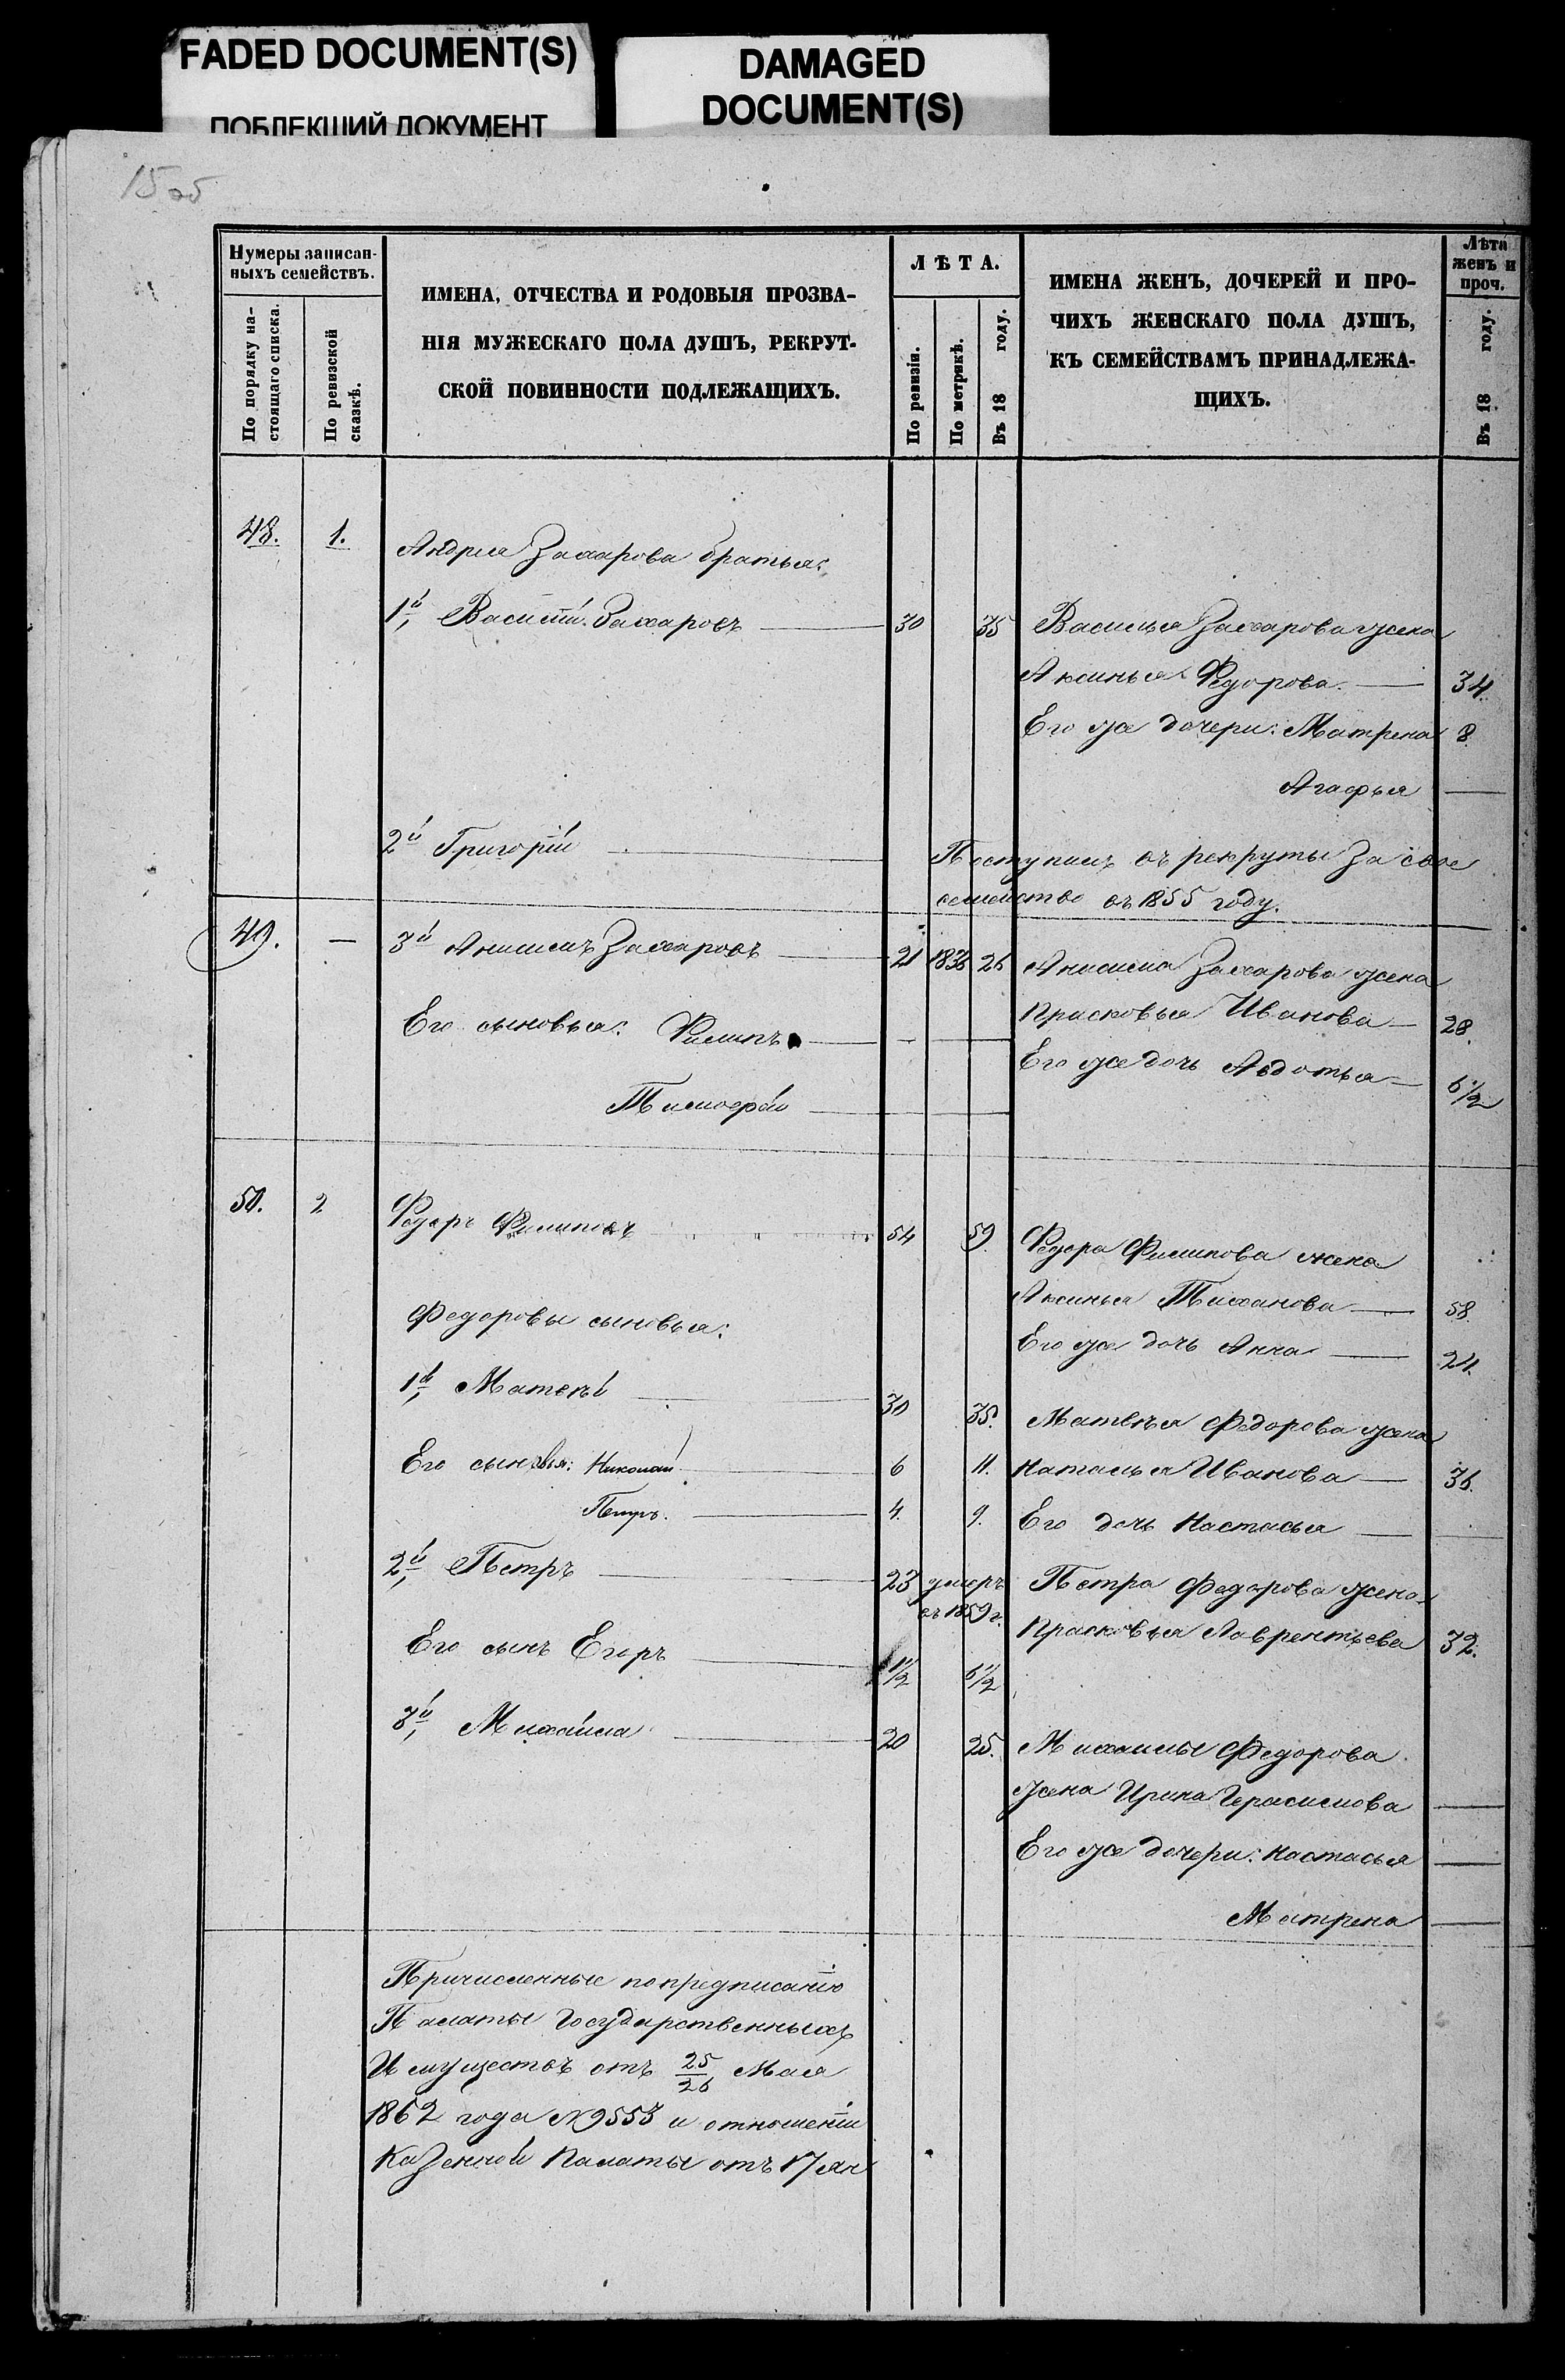 FADED DOCUMENT(S)
ПОБЛЕКШИЙ ДОКУМЕНТ
DAMAGED
DOCUMENT(S)
15об
Нумеры записан-
ныхъ семействъ.
По порядку на-
стоящаго списка.
По ревизской
сказкѣ.
ИМЕНА, ОТЧЕСТВА И РОДОВЫЯ ПРОЗВА-
НІЯ МУЖЕСКАГО ПОЛА ДУШЪ, РЕКРУТ-
СКОЙ ПОВИННОСТИ ПОДЛЕЖАЩИХЪ.
ЛѢТА.
По ревизіи.
По метрикѣ.
Въ 18 году.
ИМЕНА ЖЕНЪ, ДОЧЕРЕЙ И ПРО-
ЧИХЪ ЖЕНСКАГО ПОЛА ДУШЪ,
КЪ СЕМЕЙСТВАМЪ ПРИНАДЛЕЖА-
ЩИХЪ.
Лѣта
женъ и
проч.
Въ 18 году.
48. 1. Андрея Захарова братья:
1й, Василій Захаровъ — 30 35 Василья Захарова жена
Аксинья Федорова. — 34.
Его же дочери: Матрена 8.
Агафья —
2й Григорій — Поступилъ въ рекруты за свое
семейство въ 1855 году.
49. — 3й Анисимъ Захаровъ — 21 1836 26 Анисима Захарова жена
Прасковья Иванова — 28.
Его сыновья: Филипъ — —
Его же дочь Авдотья — 6 1/2
Тимофей —
50. 2 Федоръ Филиповъ 54 59. Федора Филипова жена
Аксинья Тиханова — 58.
Федоровы сыновья:
Его же дочь Анна — 24.
1й, Матвѣй — 30 35. Матвѣя Федорова жена
Его сыновья: Николай — 6 11. Наталья Иванова — 36.
Петръ. — 4. 9. Его дочь Настасья —
2й, Петръ — 23 умеръ Петра Федорова жена
въ 1859 г.
Прасковья Лаврентьева 32.
Его сынъ Егоръ — 1/2 5 1/2
3й, Михаила — 20 25. Михаилы Федорова
жена Ирина Герасимова —
Его же дочери: Настасья —
Матрена —
Причисленные по предписанію
Палаты Государственныхъ
Имуществъ отъ 25/26 Мая
1862 года №9553 и отношеніи
Казенной Палаты отъ 17 Ян